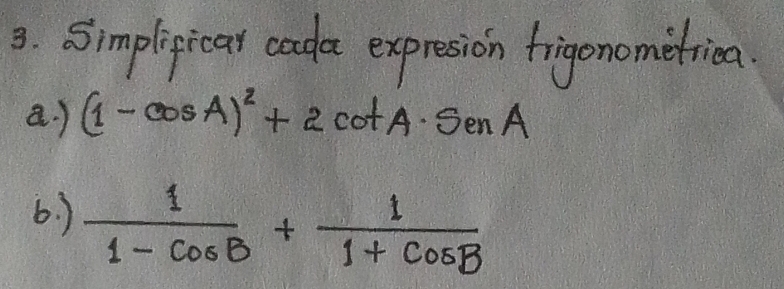 3. Simplificar cada expresión trigonométrica.
a.) (1 - cos A)² + 2 cot A · Sen A
b.) 1/(1 - Cos B) + 1/(1 + Cos B)